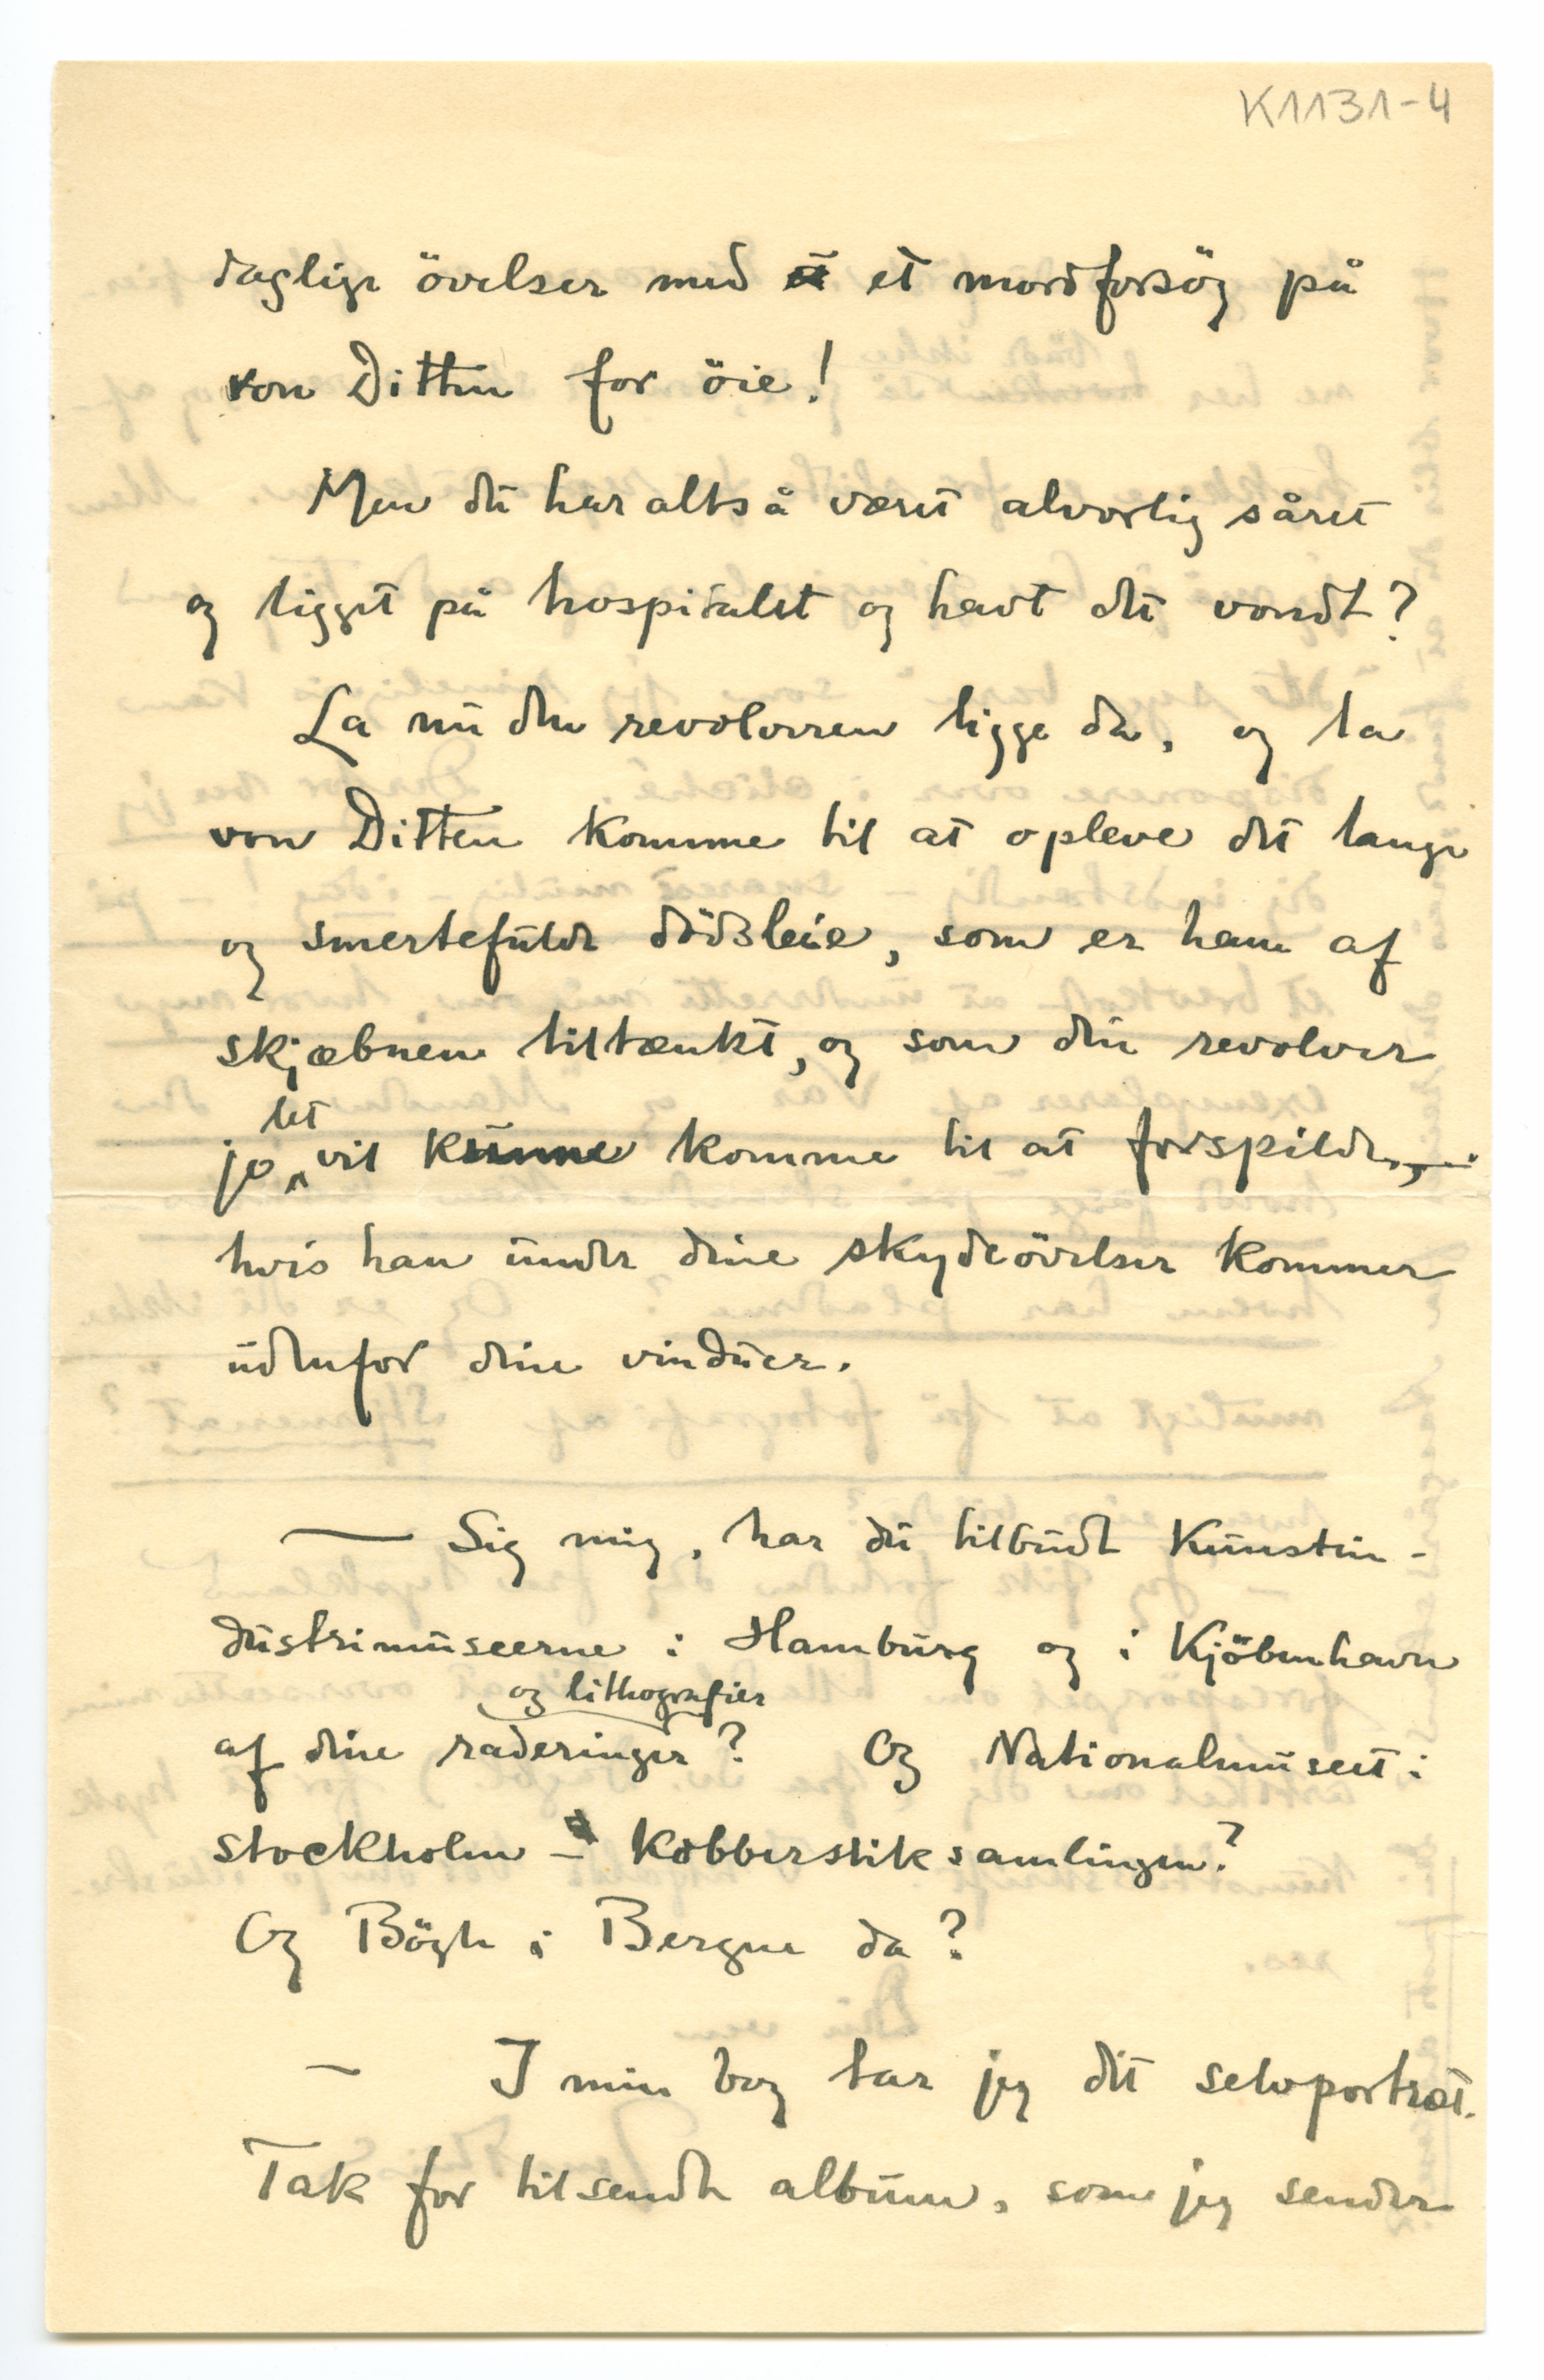 K1131-4
daglige övelser med et et mordforsög på
von Ditten for öie!
Men du har altså været alvorlig såret
og ligget på hospitalet og havt det vondt?
La nu den revolveren ligge da, og la
von Ditten komme til at opleve det lange
og smertefulde dödsleie, som er ham af
skjæbnen tiltænkt, og som din revolver
jo let vil kunne komme til at forspilde,
hvis han under dine skydeövelser kommer
udenfor dine vinduer.
— Sig mig, har du tilbudt Kunstin-
dustrimuseerne i Hamburg og i Kjöbenhavn
af dine raderinger og lithografier? Og Nationalmuseet i
Stockholm – Kobberstiksamlingen?
Og Bögh i Bergen da?
– I min bog tar jeg dit selvportræt.
Tak for tilsendte album, som jeg sender